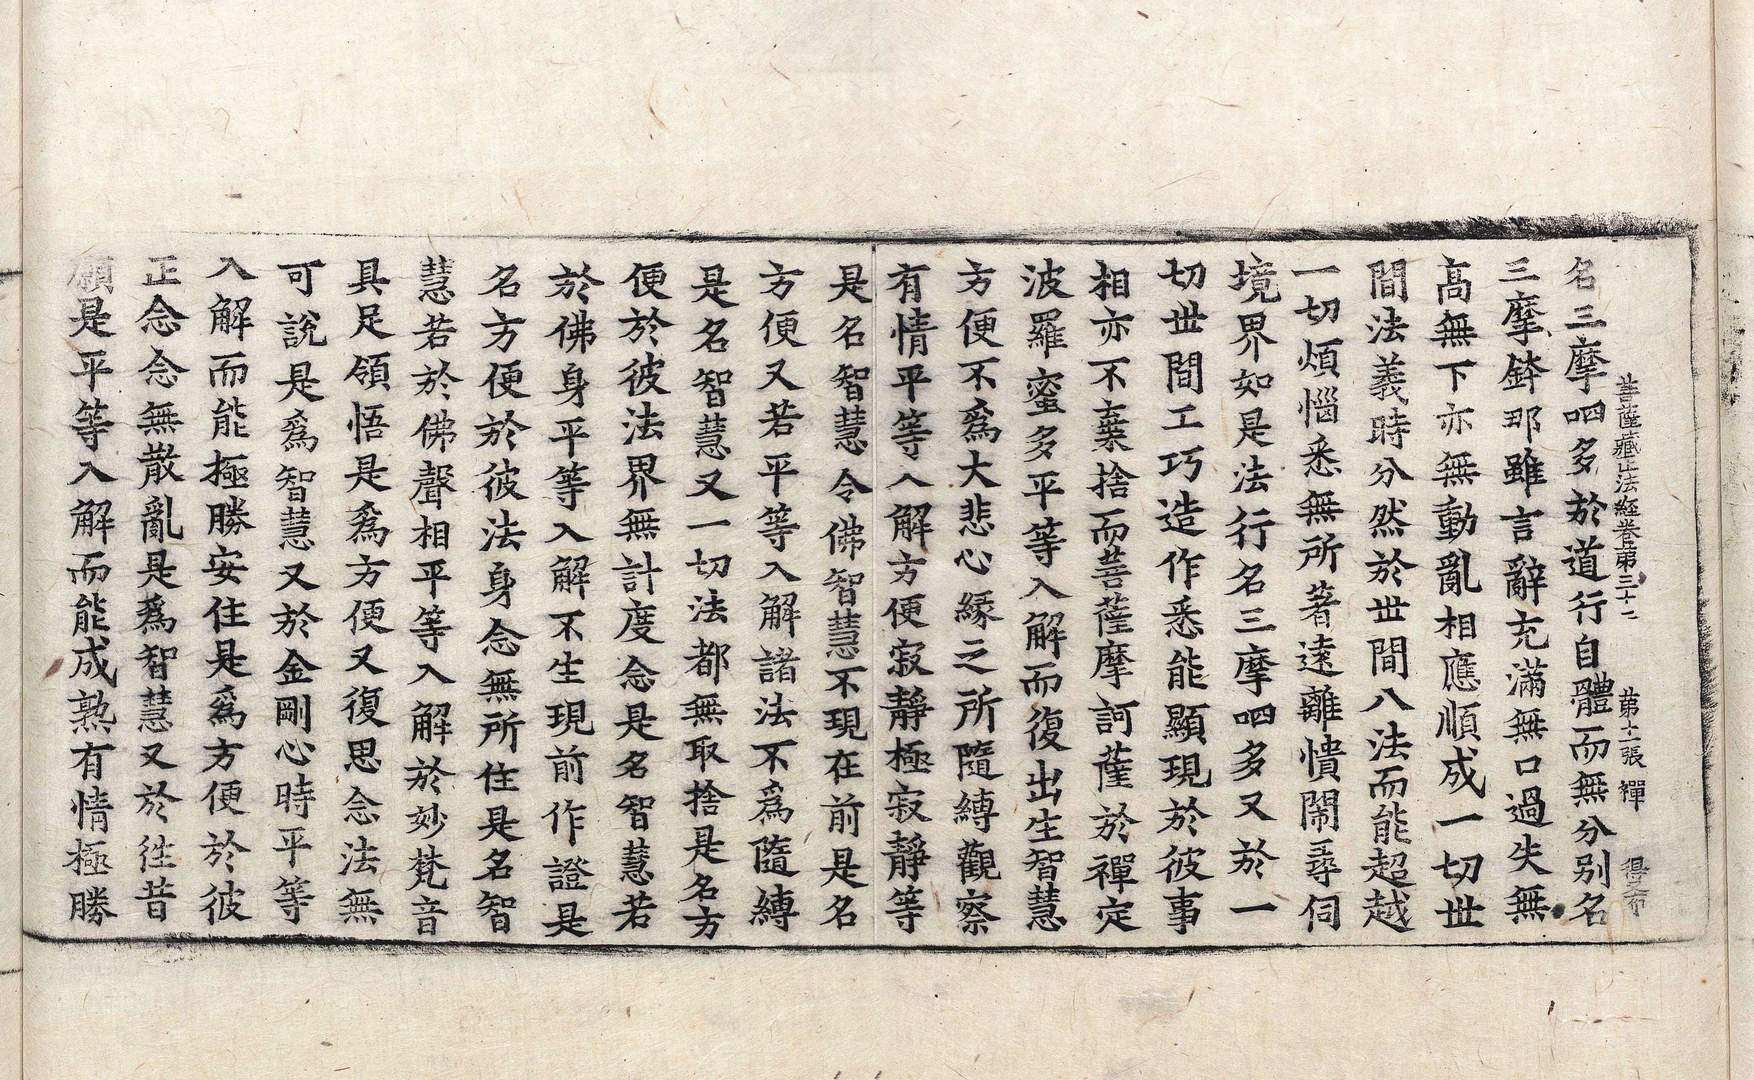 菩薩藏法經卷第三十七 第十一張 禪 得希
名三摩呬多於道行自體而無分別名
三摩鉢那雖言辭充滿無口過失無
高無下亦無動亂相應順成一切世
間法義時分然於世間八法而能超越
一切煩惱悉無所著遠離憒鬧尋伺
境界如是法行名三摩呬多又於一
切世間工巧造作悉能顯現於彼事
相亦不棄捨而菩薩摩訶薩於禪定
波羅蜜多平等入解而復出生智慧
方便不爲大悲心緣之所隨縛觀察
有情平等入解方便寂靜極寂靜等
是名智慧令佛智慧不現在前是名
方便又若平等入解諸法不爲隨縛
是名智慧又一切法都無取捨是名方
便於彼法界無計度念是名智慧若
於佛身平等入解不生現前作證是
名方便於彼法身念無所住是名智
慧若於佛聲相平等入解於妙梵音
具足領悟是爲方便又復思念法無
可說是爲智慧又於金剛心時平等
入解而能極勝安住是爲方便於彼
正念念無散亂是爲智慧又於往昔
願是平等入解而能成熟有情極勝